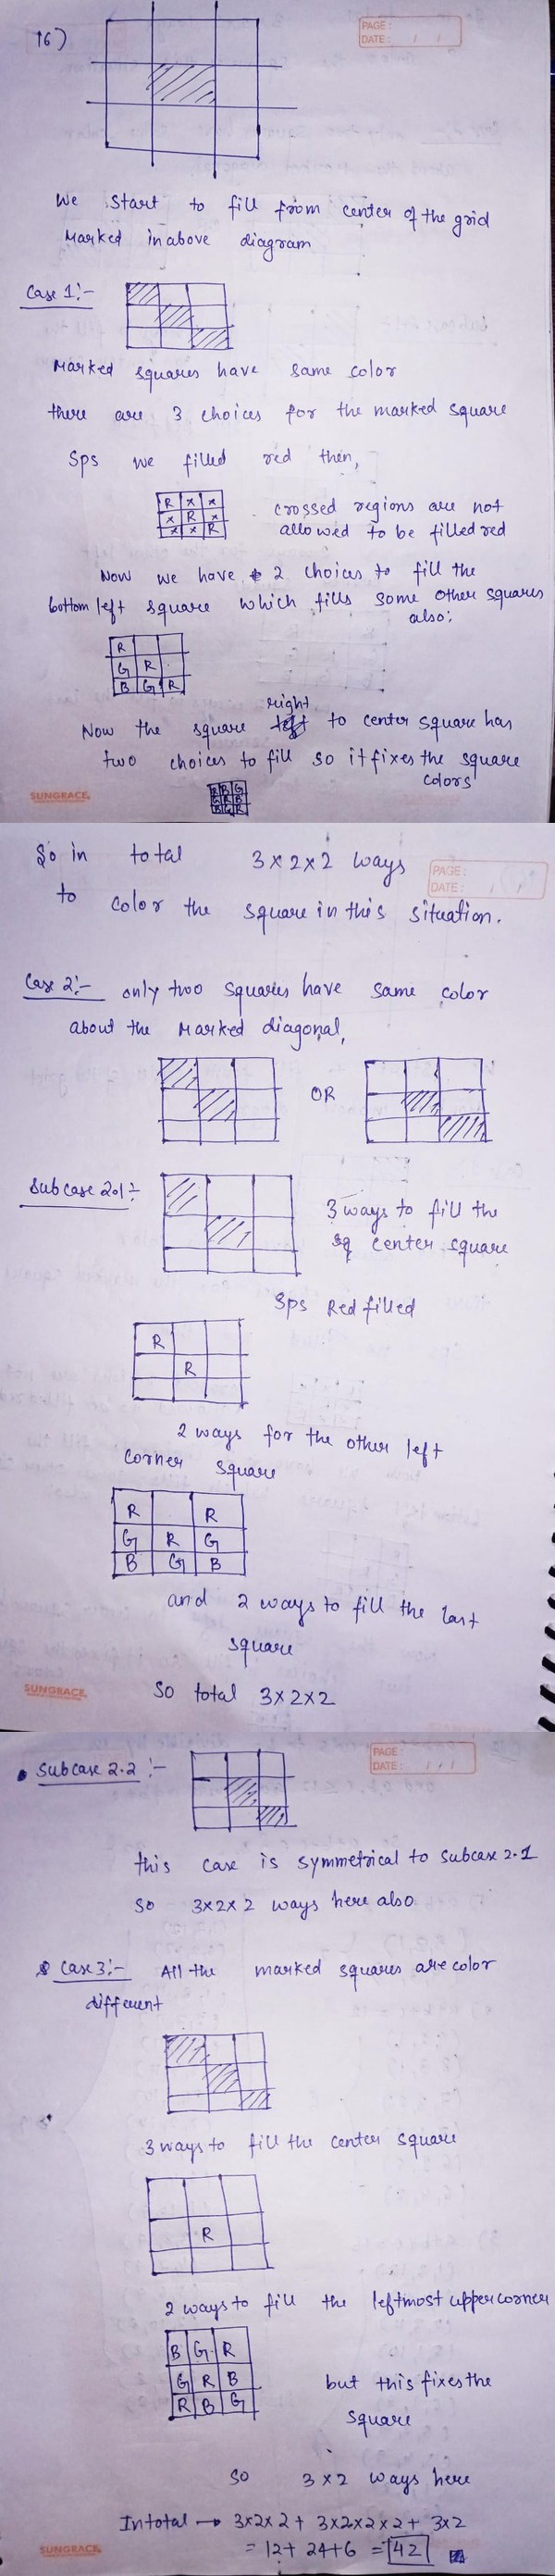 16)
PAGE:
DATE: / /
We start to fill from center of the grid
Marked in above diagram
Case 1:-
Marked squares have same color
there are 3 choices for the marked square
Sps we filled red then,
R x x
x R x
x x R
crossed regions are not
allowed to be filled red
Now we have 2 choices to fill the
bottom left square which fills some other squares
also:
R
G R
B G R
right
Now the square left to center square has
two choices to fill so it fixes the square
colors
SUNGRACE
R B G
G R B
B G R
So in total 3x2x2 ways
PAGE:
DATE: / /
to color the square in this situation.
Case 2:- only two squares have same color
about the Marked diagonal,
OR
Subcase 2.1:-
3 ways to fill the
sq center square
Sps Red filled
R
R
2 ways for the other left
corner square
R R
G R G
B G B
and 2 ways to fill the last
square
SUNGRACE
So total 3x2x2
PAGE:
DATE: / / /
Subcase 2.2:-
this case is symmetrical to subcase 2.1
so 3x2x2 ways here also
Case 3:- All the marked squares are color
different
3 ways to fill the center square
R
2 ways to fill the leftmost upper corner
B G R
G R B
R B G
but this fixes the
square
so 3x2 ways here
In total → 3x2x2 + 3x2x2x2 + 3x2
= 12+ 24+6 = 42
SUNGRACE